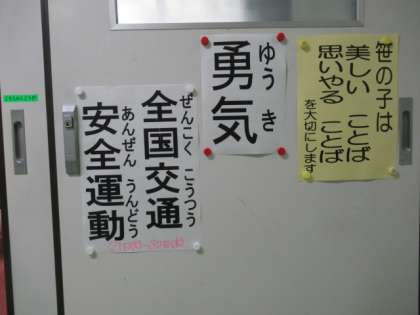 笹の子は
美しい ことば
思いやる ことば
を大切にします
ゆう き
勇気
ぜんこく こうつう
全国交通
あんぜん うんどう
安全運動